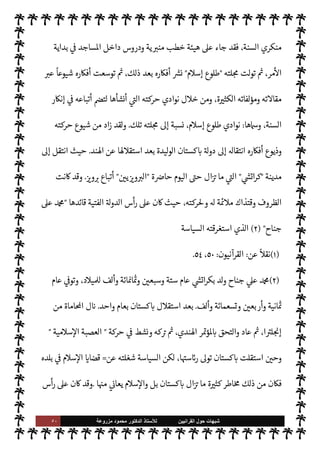 منكري السنة، فقد جاء على هيئة خطب منبرية ودروس داخل المساجد في بداية
الأمر، ثم تولت مجلته "طلوع إسلام" نشر أفكاره بعد ذلك، ثم توسعت أفكاره شيوعاً عبر
مقالاته ومؤلفاته الكثيرة، ومن خلال نوادي حركته التي أنشأها لتضم أتباعه في إنكار
السنة، وسماها: نوادي طلوع إسلام، نسبة إلى مجلته تلك. ولقد زاد من شيوع حركته
وذيوع أفكاره انتقاله إلى دولة باكستان الوليدة بعد استقلالها عن الهند. حيث انتقل إلى
مدينة "كراتشي" التي ما تزال حتى اليوم حاضرة "البرويزيين" أتباع برويز. وقد كانت
الظروف وقتذاك ملائمة له ولحركته، حيث كان على رأس الدولة الفتية قائدها "محمد على
جناح" (٢) الذي استغرقته السياسة
(١)نقلاً عن: القرآنيون: ٥٠، ٥٤.
(٢)محمد علي جناح ولد بكراتشي عام ستة وسبعين وثمانمائة وألف للميلاد، وتوفي عام
ثمانية وأربعين وتسعمائة وألف. بعد استقلال باكستان بعام واحد. نال المحاماة من
إنجلترا، ثم عاد والتحق بالمؤتمر الهندي. ثم تركه ونشط في حركة " العصبة الإسلامية "
وحين استقلت باكستان تولى رئاستها، لكن السياسة شغلته عن= قضايا الإسلام في بلده
فكان من ذلك مخاطر كثيرة ما تزال باكستان بل والإسلام يعاني منها .وقد كان على رأس
شبهات حول القرآنيين للأستاذ الدكتور محمود مزروعة ٥٠